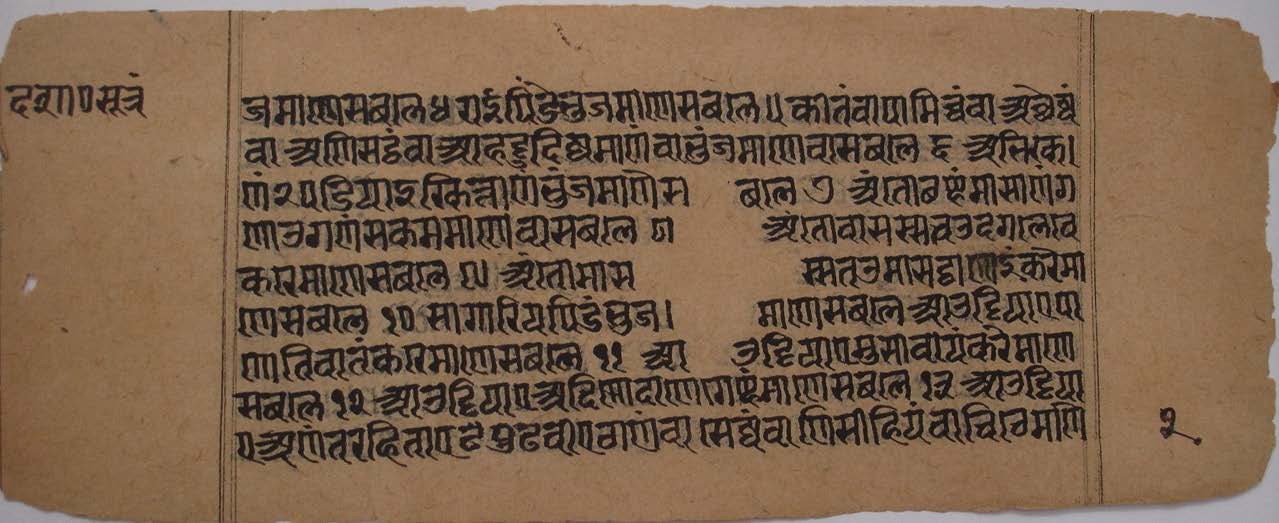 दशा०सूत्रं
जमाणेसबले५ रायपिंडंभुजमाणेसबले॥ कीतंवापामिच्चंवा अच्छेज्जं
वा अणिसठंवा आहट्टुदिज्जमाणंवाभुंजमाणेवासबले ६ अभिक्ख
णं२पडियाइक्खित्ताणंभुंजमाणेस बले ७ अंतोछण्हंमासाणंग
णाउगणंसंकममाणेवासबले ८ अंतोमासस्सतउदगलेव
करेमाणेसबले ९ अंतोमास स्सतउमासट्ठाणाइंकरेमा
णेसबले १० सागारियपिंडंभुंज। माणेसबले आउट्टियाएपा
णातिवातंकरेमाणेसबले ११ आ उट्टियाएमुसावायंकरेमाणे
सबले १२ आउट्टियाएअदिण्णादाणंगेण्हंमाणेसबले १३ आउट्टिया
एअणंतरहिताए पुढवीएठाणंवा सेज्जंवा णिसीहियंवाचेतेमाणे
२